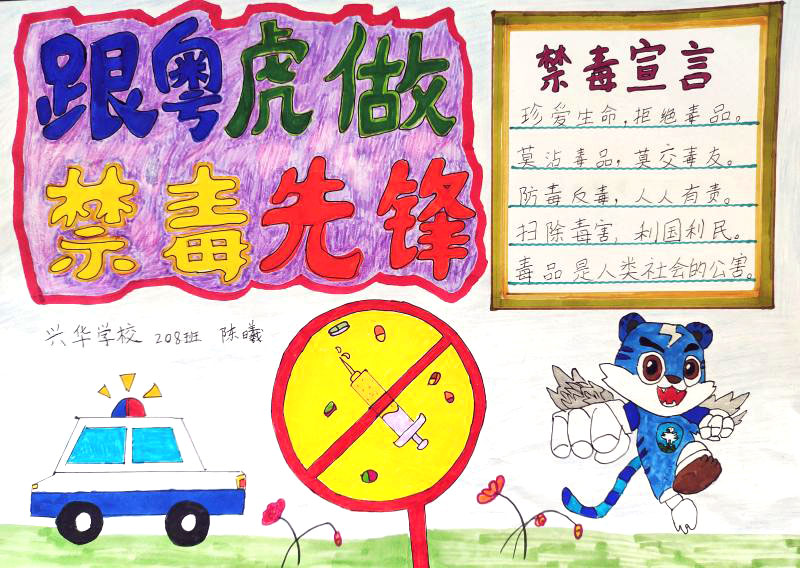 跟粤虎做
禁毒先锋
禁毒宣言
珍爱生命,拒绝毒品。
莫沾毒品,莫交毒友。
防毒反毒,人人有责。
扫除毒害,利国利民。
毒品是人类社会的公害。
兴华学校 208班 陈曦